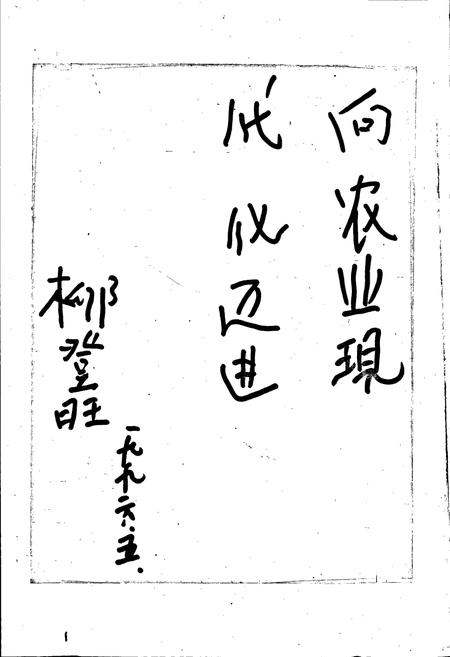 向农业現
代化迈进
柳登旺
一九九六.五.